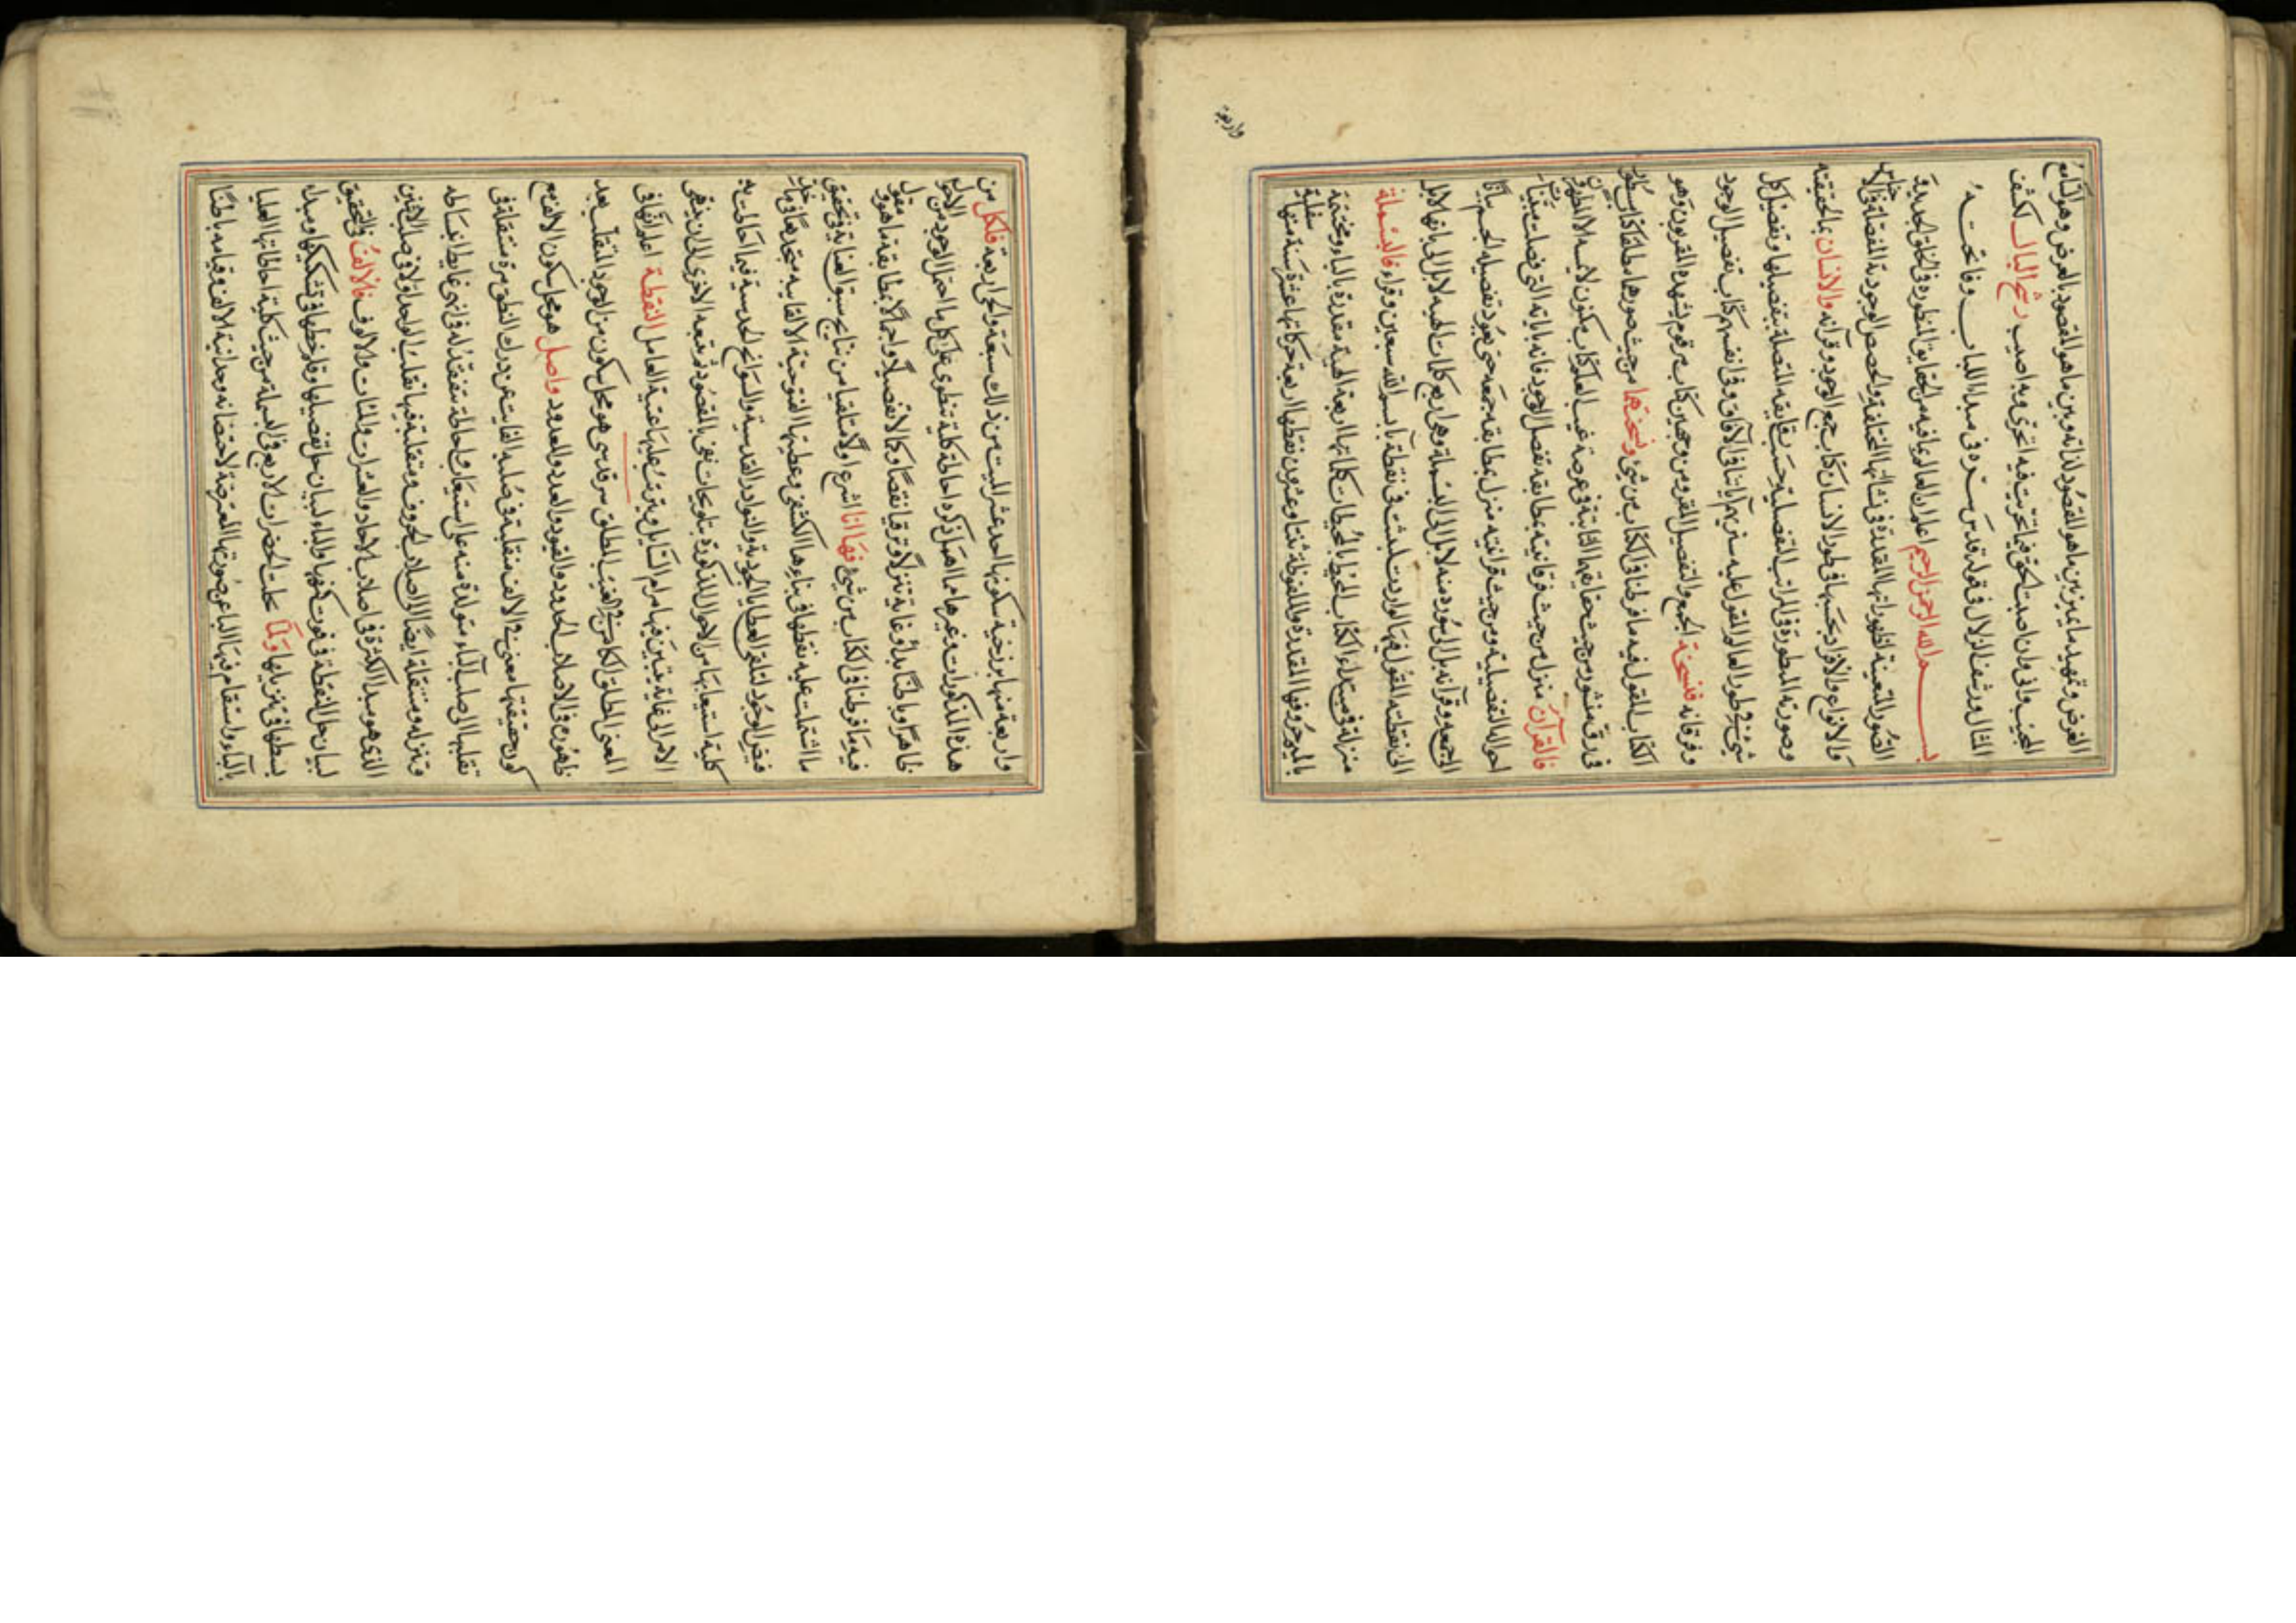 الغرض وتمهيد ما يميز بين ما هو المقصود لذاته وبين ما هو المقصود بالعرض وهو الكتاب مع
المجيب وانى وان اصبت الحق فيما تحريت فيه احرى وبه اصيب رشح البال لكشف
المثال ورشف الزلال فى قوله قدس سره فى مبدا اللباب وفاتحته
بسم الله الرحمن الرحيم اعلم ان العالم بما فيه من الحقايق المنظورة فى الخلق الجديد
الصور المتعينة لظهوراتها المقدرة فى نشاتها المختلفة والحصص الوجودية المفصلة فى الاجناس
والانواع والافراد بحسبها فى طور الانسان كتاب جمع الوجود وقرآنه والانسان بالحقيقة
وصورته المسطورة فى المراتب التفصيلية حسب رقايقه المتصلة بتفصيلها وتفصيل كل
شىء فى طور العالم المقول عليه سنريهم آياتنا فى الآفاق وفى انفسهم كتاب تفصيل الوجود
وفرقانه فنسخة الجمع والتفصيل للمقربين وجهين كتاب مرقوم يشهده المقربون وهو
الكتاب المقول فيه ما فرطنا فى الكتاب من شىء ونسختها من حيث صورهما مطلقا كتاب مسطور
فى رق منشور من حيث حقايقها الثابتة فى عرصة غيب العلم كتاب مكنون لا يمسه الا المطهرون
فالقرآن منزل من حيث فرقانيته بمطابقة تفصيل الوجود فانه باياته التى فصلت مبينات
احواله التفصيلية ومن حيث قرآنيته منزل بمطابقة جمعه حتى يعود تفصيله الجم بيانا
الى جمعه وقرآنه بل الى سورة منه لا بل الى البسملة وهى اربع كلمات الهية لا بل الى بائها لا بل
الى نقطته المقول فيها لو اردت لبثثت فى نقطة باء بسم الله سبعين وقرا فالبسملة
منزلة فى مبتداء الكتاب المحيط بالمحيطات كلماتها اربعة الهية مقدرة بالباء ومختتمة
بالميم حروفها المقدرة والملفوظة ثنتا وعشرون نقطها اربعة حركاتها عشرة ستة منها سفلية
واربعة
واربعة منها برزخية سكونها احد عشر الميت من ذلك سبعة والحى اربعة فلكل من
هذه المذكورات وغيرها مما اهمل ذكره احاطة كلية تنطوى على كل ما احتمل الوجود من الاحوال
ظاهرا وباطنا بدأ وغاية تنزلا وترقيا نقصا وكمالا تفصيلا واجمالا بمطابقة ما هو مقول
فيه ما فرطنا فى الكتاب من شىء فها انا اشرع اولا متلقيا من نتايج سبق العناية فى تحقيق
ما اشتملت عليه نقطها فى بناءها الكشفى وعطيتها الفتوحية الالقائية متجردا فى ما خلى
فيض الوجود لتلقى العطايا الجودية والنوادر القدسية والسوانح الحدسية فيما احاطت به
كلية استيعابها من الاحوال المذكورة بتلويحات تفى بالمقصود ثم نتبعه الاخرى الى ان ينتهى
الامر الى غاية يتبين فيها مرام السايل ويترتب عليها عقبة العامل النقطة اعلم انها فى
المعنى المطلق الكامن فى الغيب المطلق سر قدسى هو محل سكون من الوجود المتقلب بعد
ظهوره فى الاصلاب الحدود والقيود والعدد والمعدود واصل هو محل سكون الالف مع
كون حقيقتها معنى فى الالف منقلبة فى صلبه الفايت عن درك النطق مرة متنقلة فى
تقلبها الى صلب الباء متولدة منه على استيعاب واحاطة متفقة له فى انهى غايات انبساطه
وتنزله ومتنقلة ايضا الى اصلاب الحروف ومتقلبة فيها تقلب الواحد اولا فى صلب الاثنين
الذى هو مبدا الكثرة فى اصلاب الآحاد والعشرات والمئات والالوف فالالف والتحقيق
لبيان حال النقطة فى غوت كنهها والباء لبيان حال تفصيلها وقلوب خطها فى تشكيكها ومبدأ
بسطها فى تنزيلها ولما تجلت الحضرات الاربع فى البسملة من حيث كلية احاطاتها العليا
بالباء واستقام فيها الباء عن صورتها المعترضة لاختصاصه بوحدانية الالف وقيامه باطنا